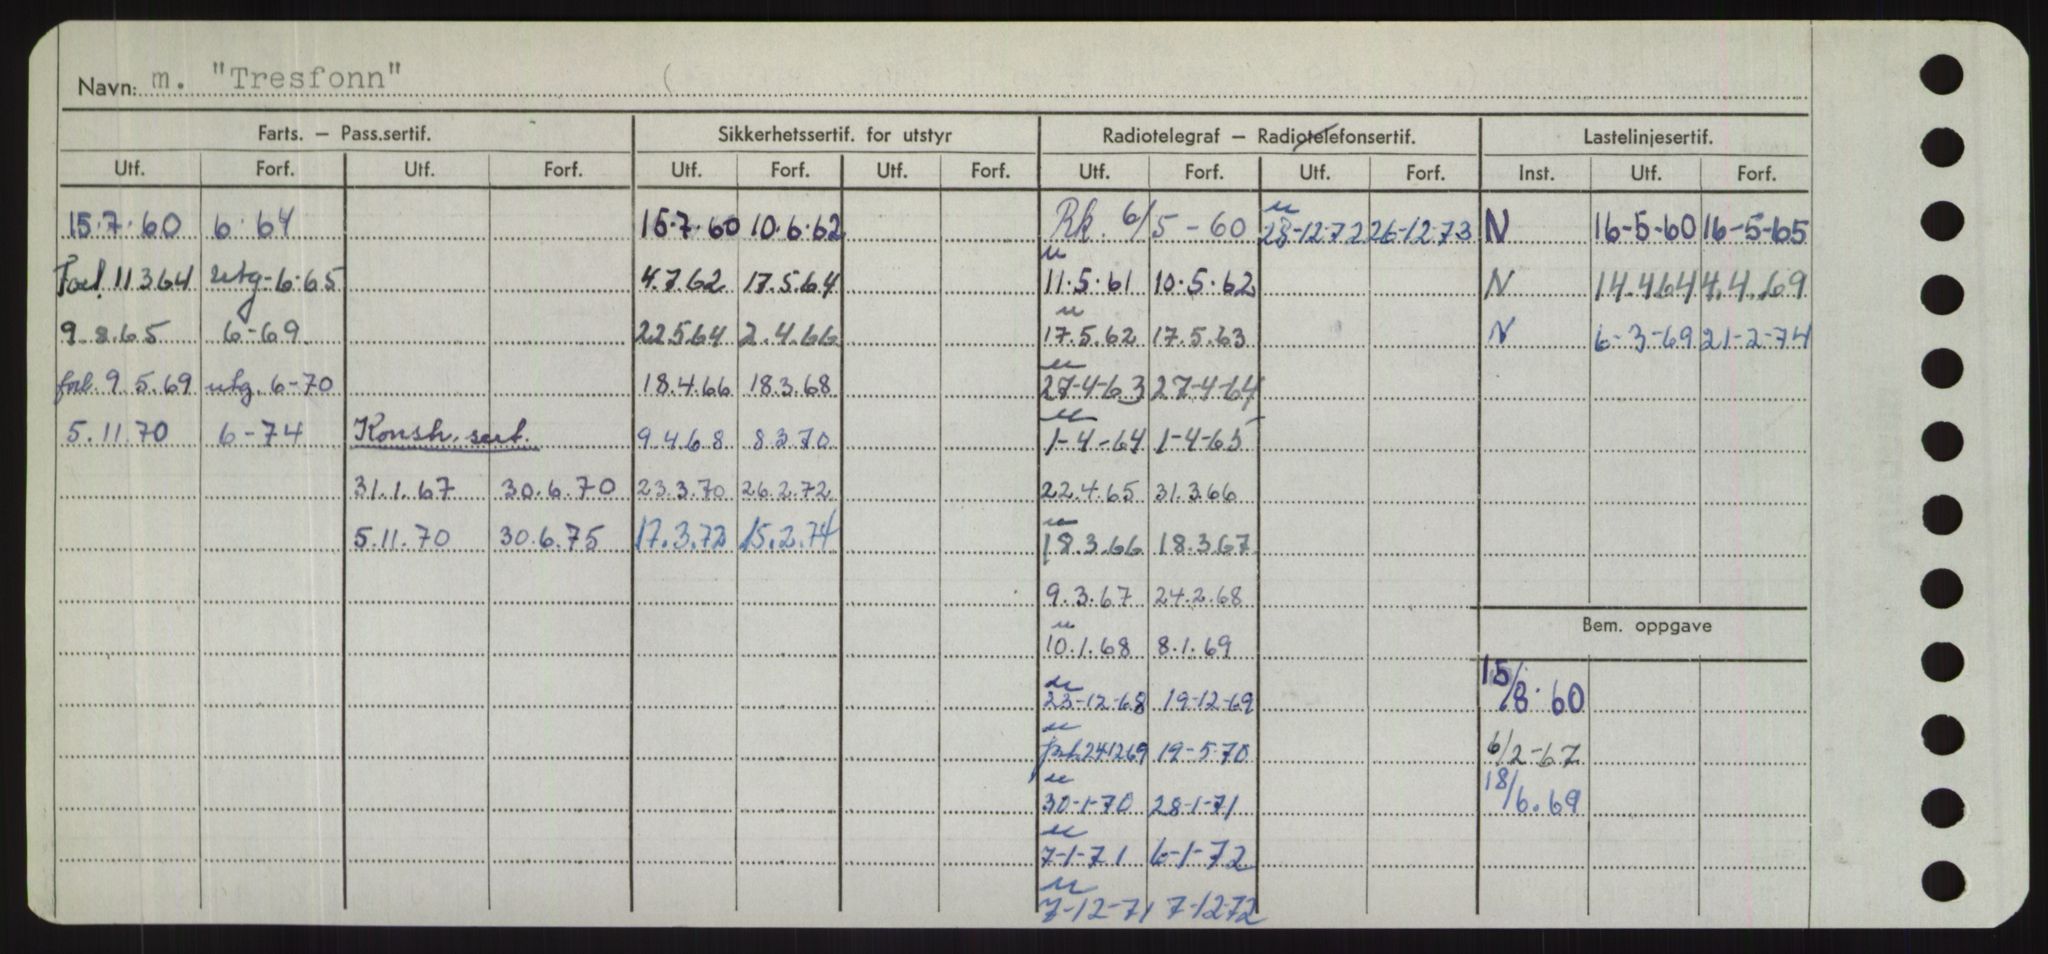 Navn: m. "Tresfonn" (
Farts. – Pass.sertif. Sikkerhetssertif. for utstyr Radiotelegraf – Radiotelefonsertif. Lastelinjesertif.
Utf. Forf. Utf. Forf. Utf. Forf. Utf. Forf. Utf. Forf. Utf. Forf. Inst. Utf. Forf.
15.7.60 6.64 15.7.60 10.6.62 Rk. 6/5-60 u 28-12-72 26-12-73 N 16-5-60 16-5-65
Forl. 11364 utg-6.65 4.7.62 17.5.64 u 11.5.61 10.5.62 N 14.464 4.4.69
9.8.65 6-69 22564 2.4.66 u 17.5.62 17.5.63 N 6-3-69 21-2-74
forl. 9.5.69 utg. 6-70 18.4.66 18.3.68 u 27-4-63 27-4-64
5.11.70 6-74 Konstr. sert. 9.4.68 8.3.70 u 1-4-64 1-4-65
31.1.67 30.6.70 23.3.70 26.2.72 22.4.65 31.3.66
5.11.70 30.6.75 17.3.72 15.2.74 u 18.3.66 18.3.67
9.3.67 24.2.68
Bem. oppgave
u 10.1.68 8.1.69
u 23-12-68 19-12-69 15/8.60
u forl. 241269 19-5-70 6/2-67
u 30-1-70 28-1-71 18/6.69
u 7-1-71 6-1-72
u 7-12-71 7-12-72